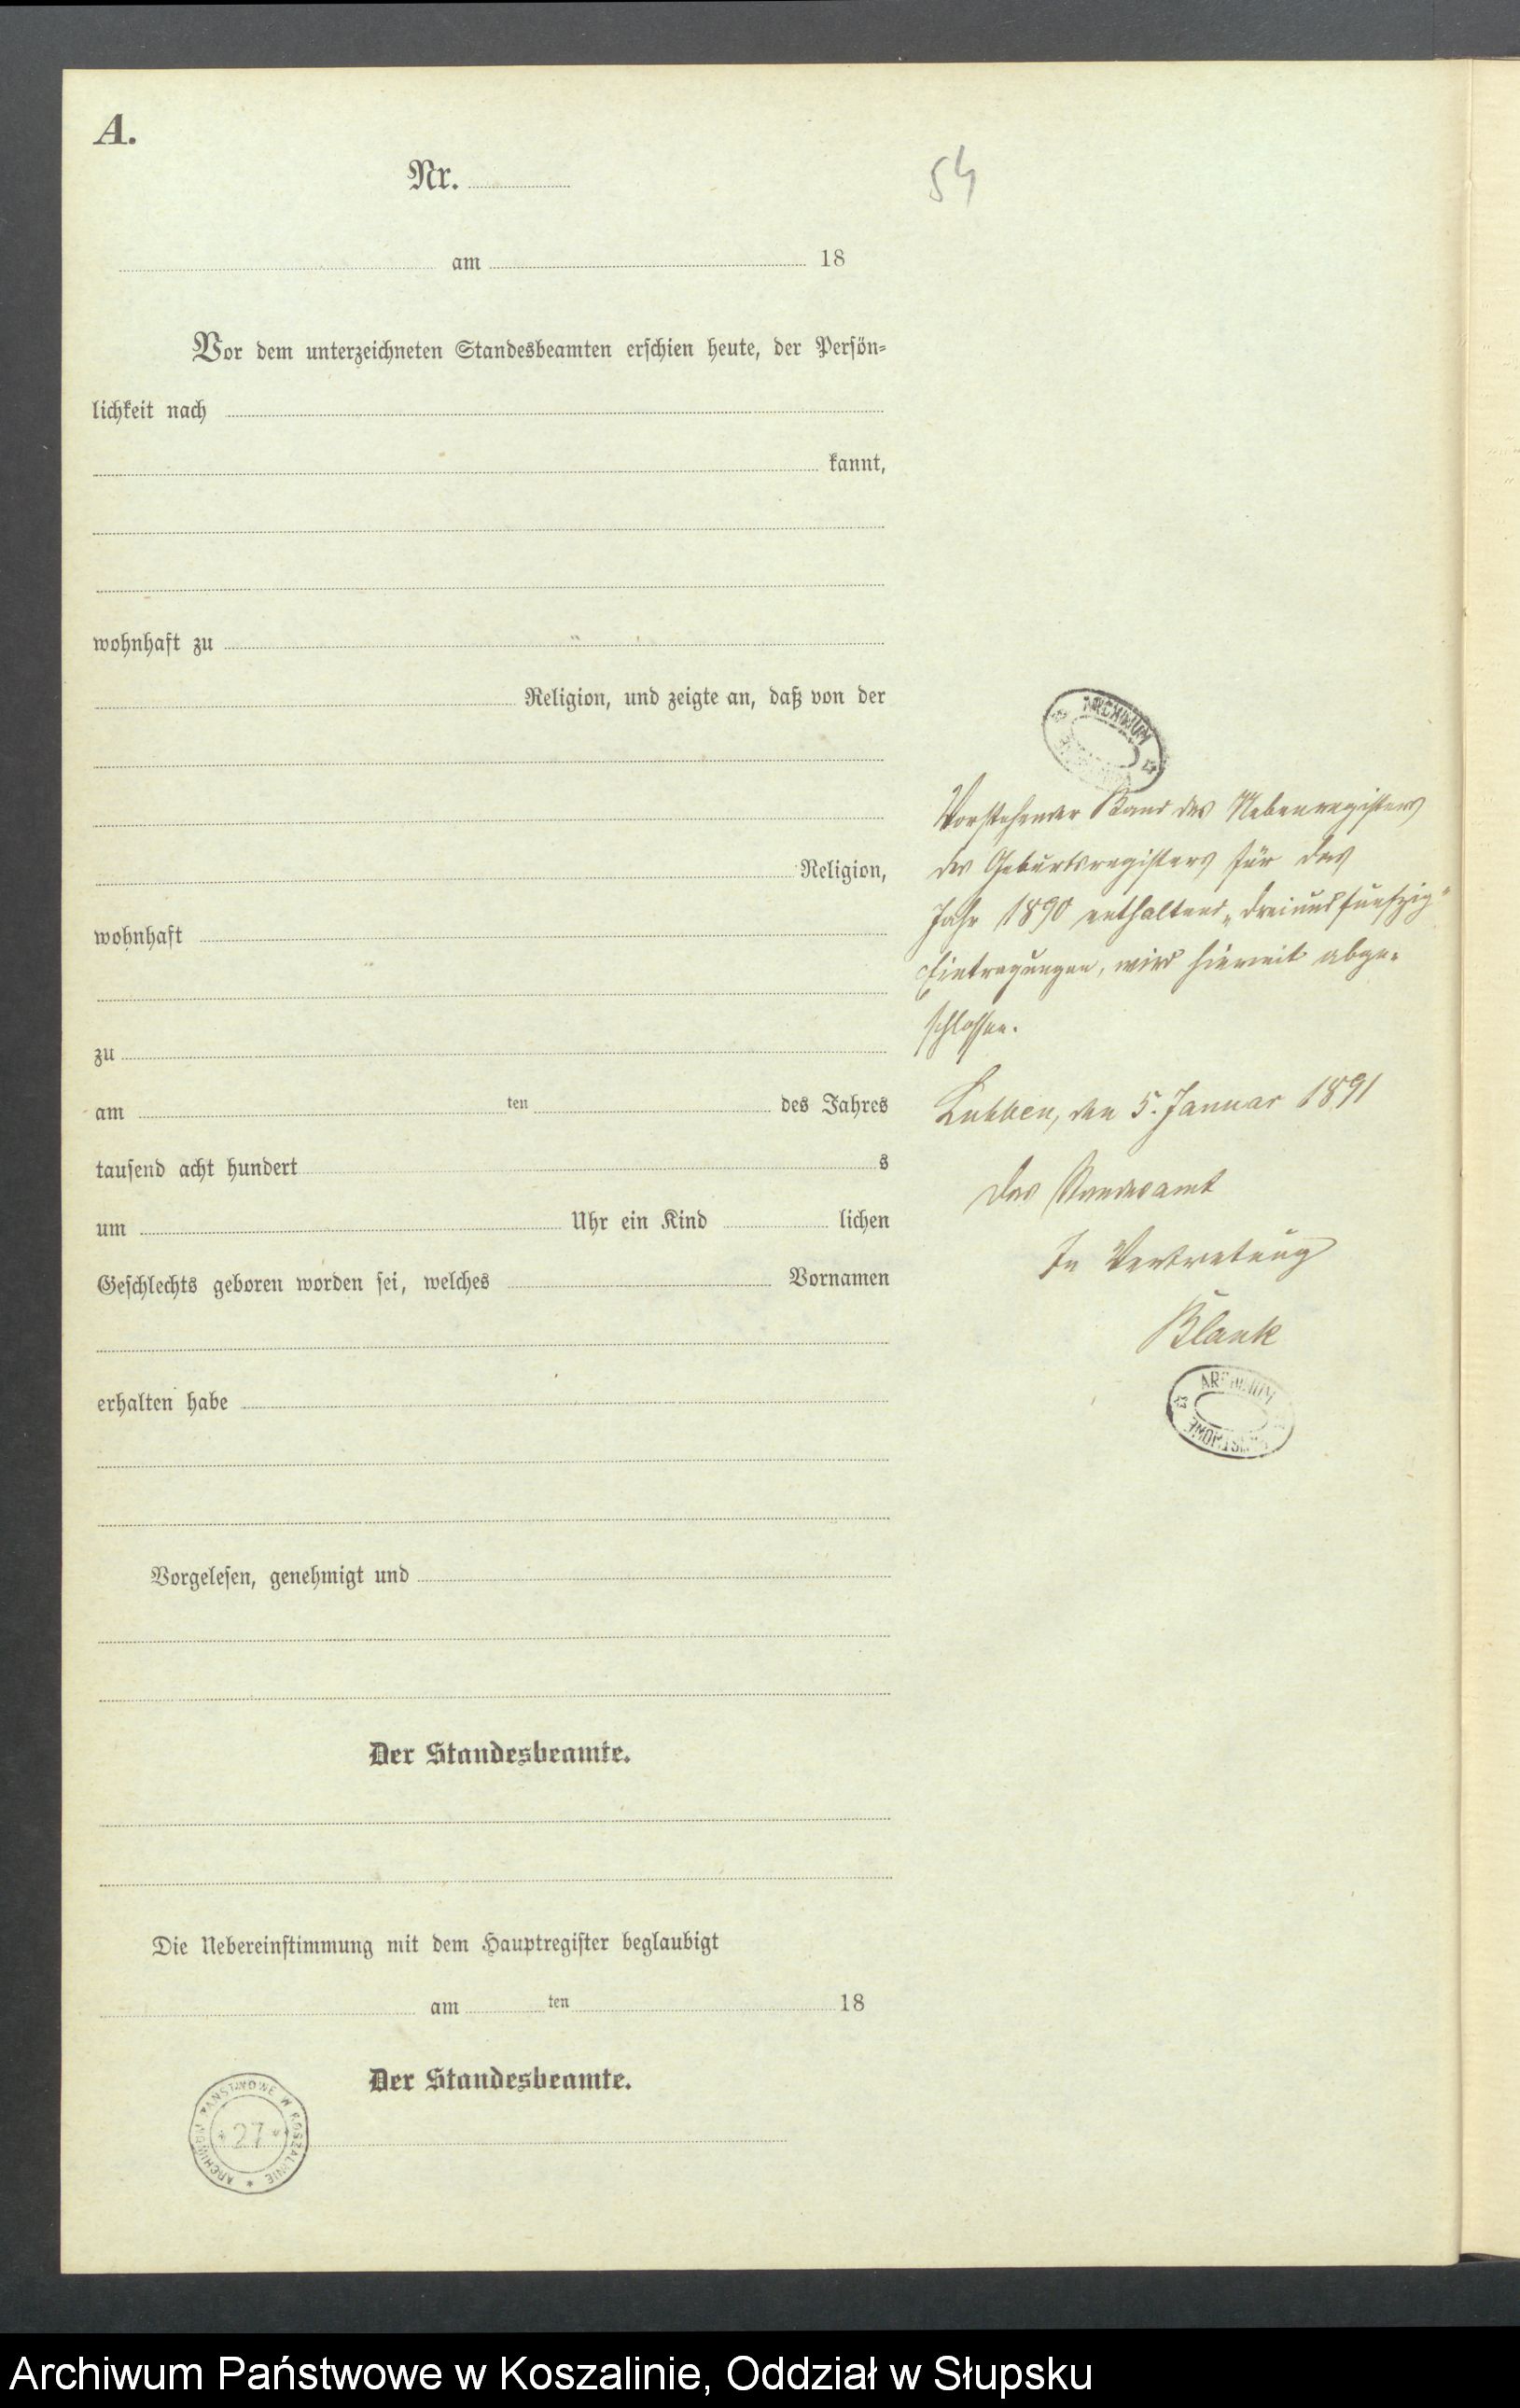 A.
Nr.
54
am 18
Vor dem unterzeichneten Standesbeamten erschien heute, der Persön-
lichkeit nach
kannt,
wohnhaft zu
Religion, und zeigte an, daß von der
Religion,
wohnhaft
zu
am ten des Jahres
tausend acht hundert s
um Uhr ein Kind lichen
Geschlechts geboren worden sei, welches Vornamen
erhalten habe
Vorgelesen, genehmigt und
Der Standesbeamte.
Die Uebereinstimmung mit dem Hauptregister beglaubigt
am ten 18
Der Standesbeamte.
ARCHIWUM PAŃSTWOWE W KOSZALINIE
27
ARCHIWUM
Vorstehender Band des Nebenregisters
des Geburtsregisters für das
Jahr 1890 enthaltend „dreiundfunfzig"
Eintragungen, wird hiermit abge-
schlossen.
Lubben, den 5. Januar 1891
Das Standesamt
In Vertretung
Blank
ARCHIWUM
Archiwum Państwowe w Koszalinie, Oddział w Słupsku